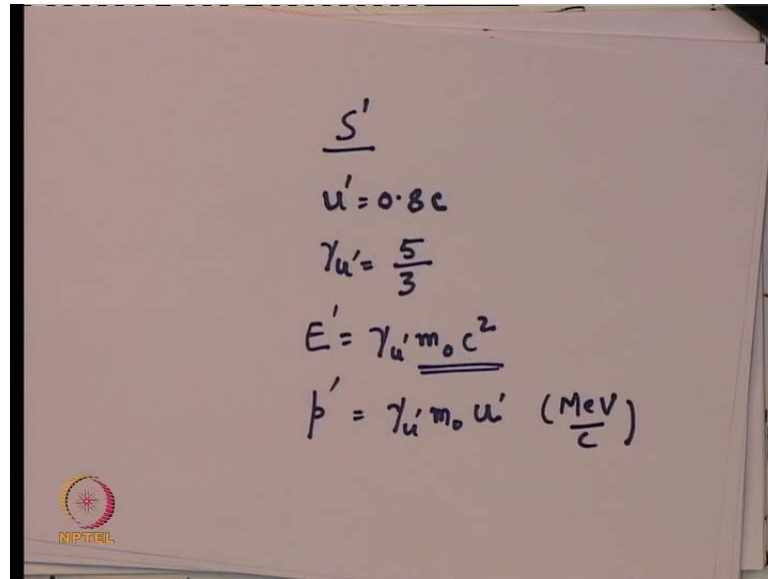 S'
u' = 0.8c
γu' = 5/3
E' = γu' m₀c²
p' = γu' m₀ u' (MeV/c)
NPTEL